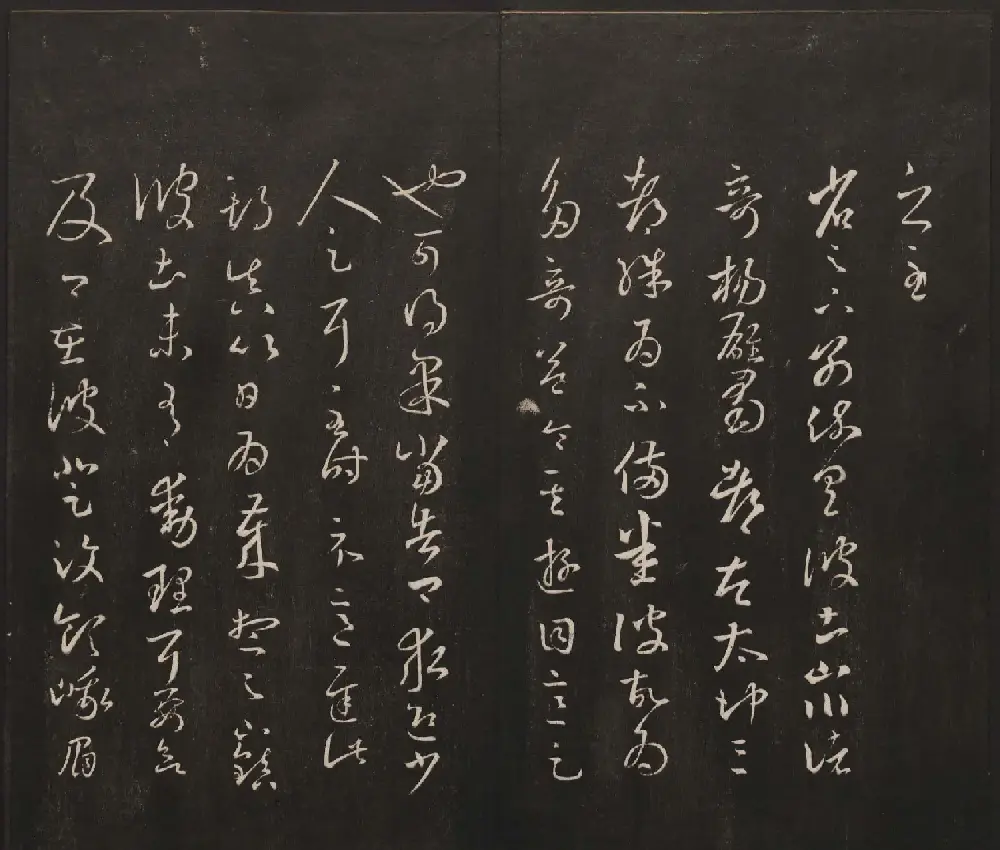 之至
省足下別疏具彼土山川諸
奇楊雄蜀都左太沖三
都殊為不備悉彼故為
多奇益令其遊目意足
也可得果當告卿求迎少
人足耳至時示意遲此
期真以日為歲想足下鎮
彼土未有動理耳要欲
及卿在彼登汶領峨眉